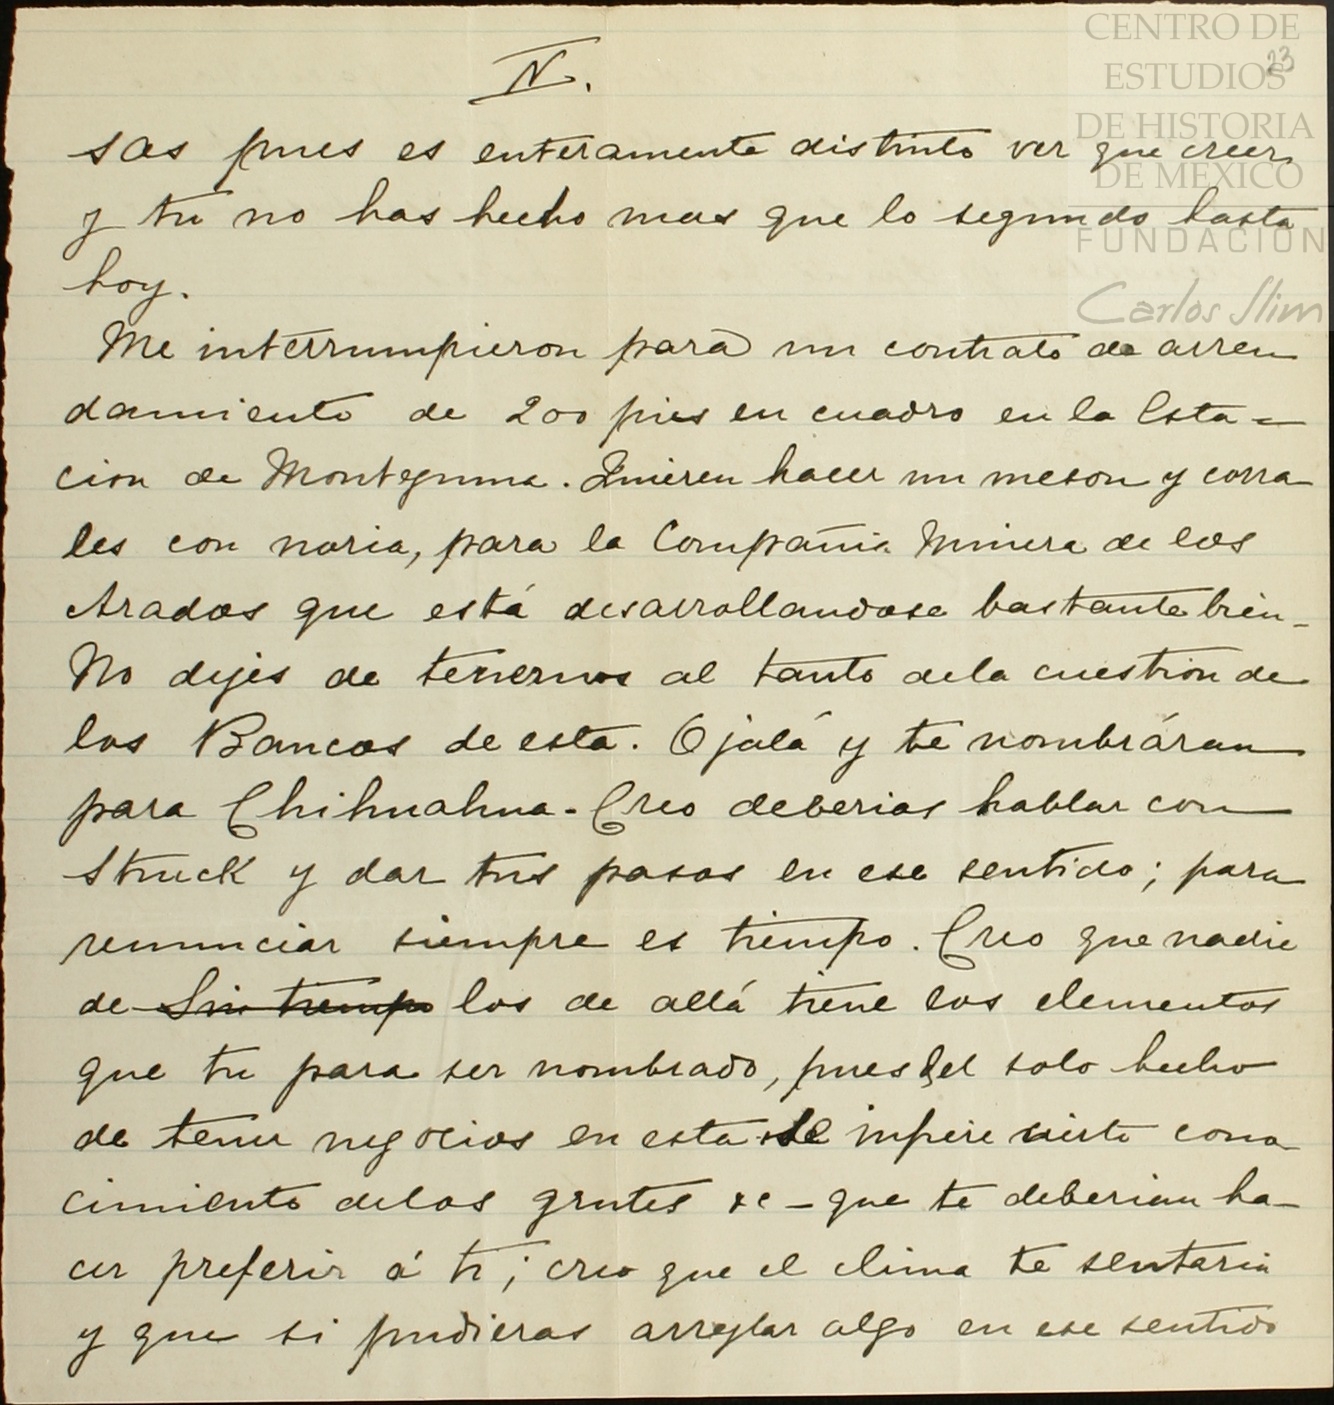 IV.
23
CENTRO DE
ESTUDIOS
DE HISTORIA
DE MEXICO
FUNDACION
Carlos Slim
sas pues es enteramente distinto ver que creer
y tu no has hecho mas que lo segundo hasta
hoy.
Me interrumpieron para un contrato de arren
damiento de 200 pies en cuadro en la Esta=
cion de Montezuma. Quieren hacer un meson y corra
les con noria, para la Compañia Minera de los
Arados que está desarrollandose bastante bien-
No dejes de tenernos al tanto de la cuestion de
los Bancos de esta. Ojalá y te nombráran
para Chihuahua- Creo deberias hablar con
Struck y dar tus pasos en ese sentido; para
renunciar siempre es tiempo. Creo que nadie
de Sin tiempo los de allá tiene los elementos
que tu para ser nombrado, pues el solo hecho
de tener negocios en esta se infiere cierto cono
cimiento de las gentes &c - que te deberian ha-
cer preferir á ti; creo que el clima te sentaria
y que si pudieras arreglar algo en ese sentido